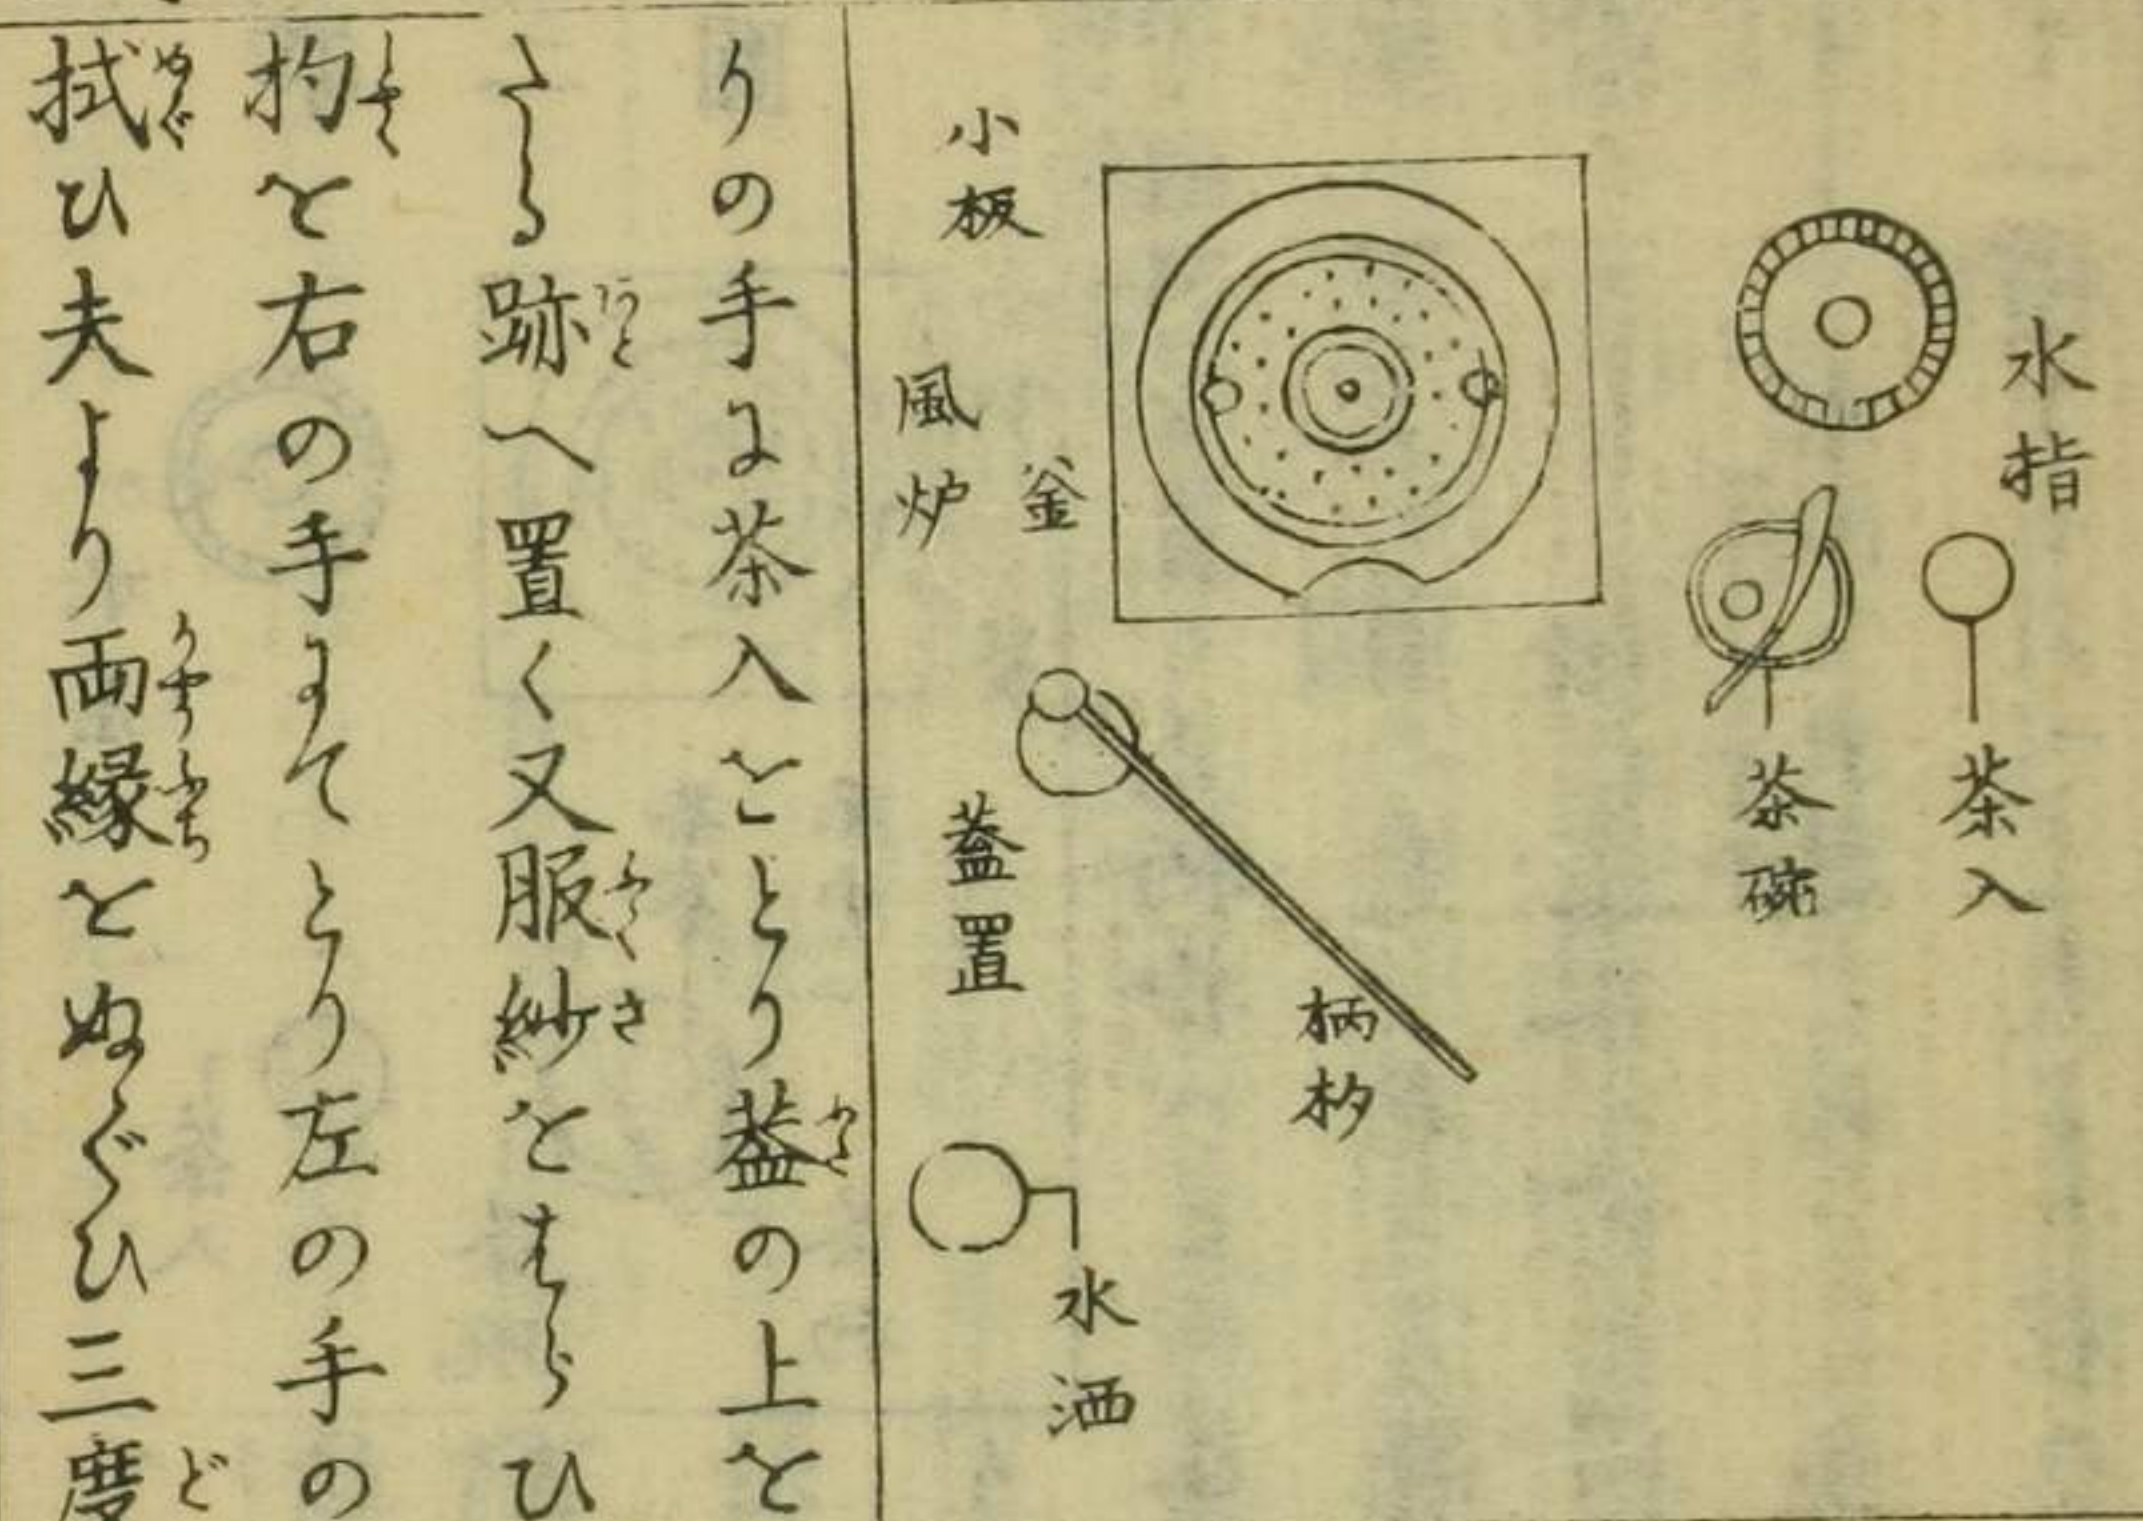 水指
茶入
茶碗
小板
釜
風炉
蓋置
柄杓
水洒
りの手に茶入をとり蓋の上を
たる跡へ置く又服紗をはらひ
杓を右の手にてとり左の手の
拭ひ夫より両縁をぬぐひ三度